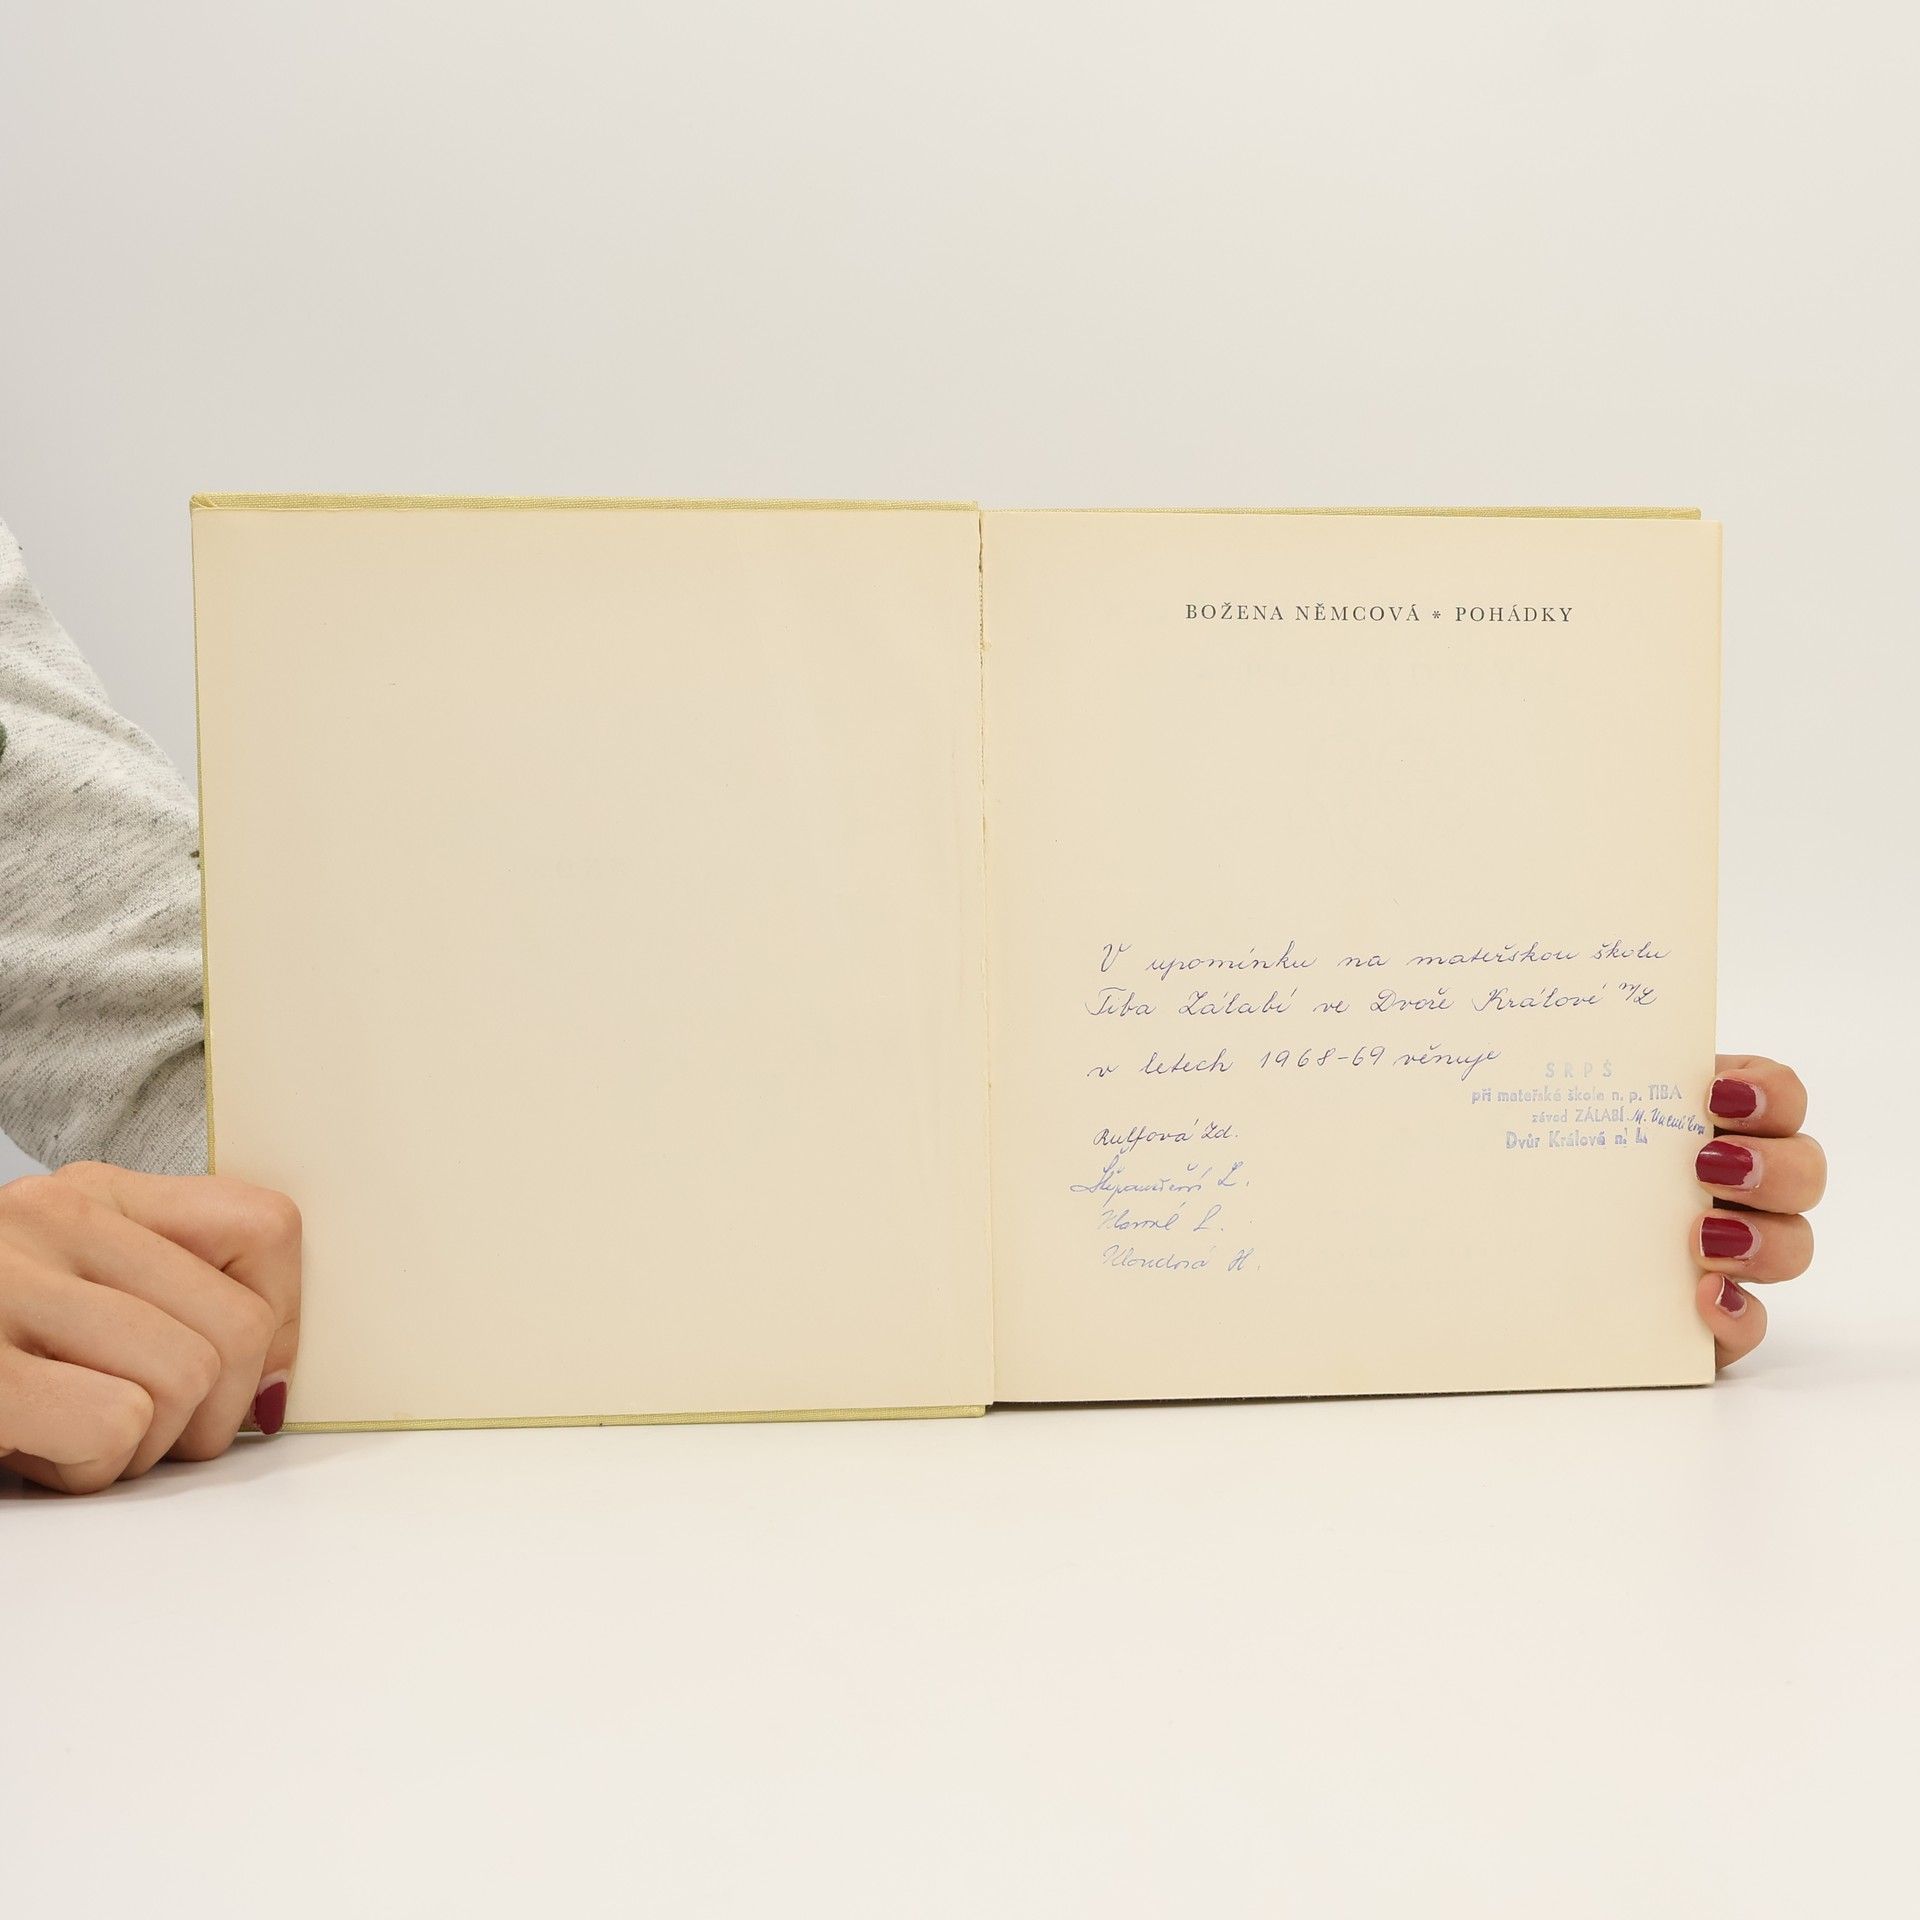 BOŽENA NĚMCOVÁ * POHÁDKY
V upomínku na mateřskou školu
Tiba Zálabí ve Dvoře Králové n/L
v letech 1968-69 věnuje
SRPŠ
při mateřské škole n. p. TIBA
závod ZÁLABÍ M.
Dvůr Králové n. L.
Rulfová Zd.
L.
L.
H.